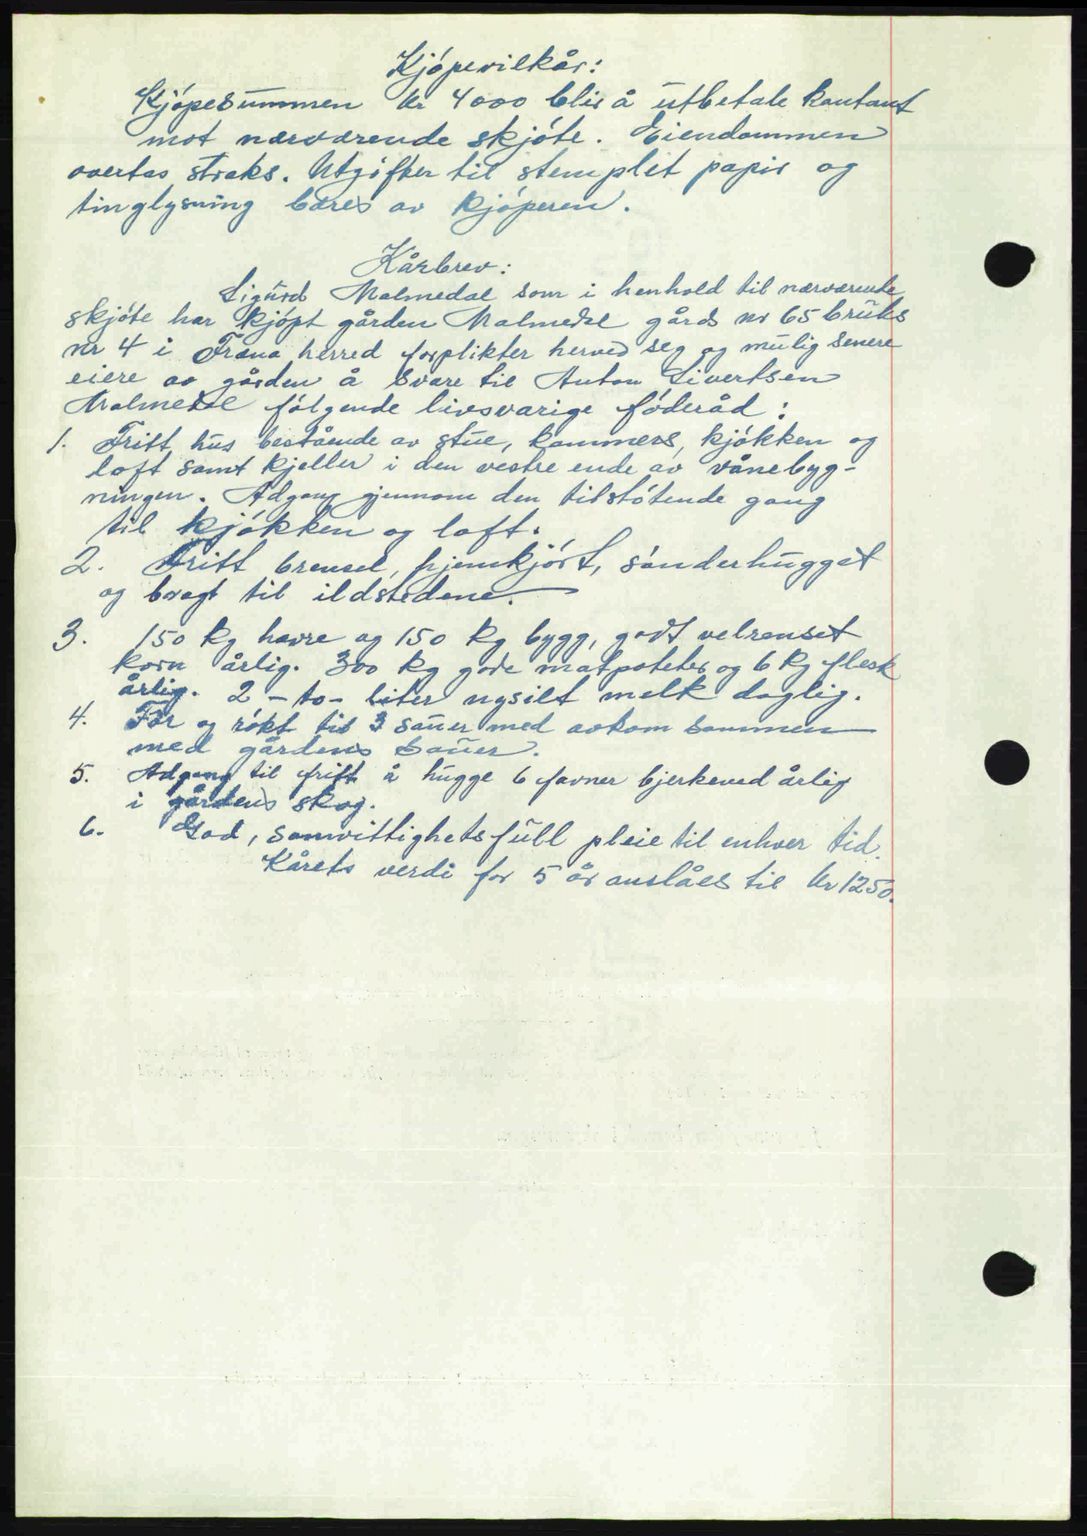 Kjøpevilkår:
Kjøpesummen kr 4000 blir å utbetale kontant
mot nærværende skjøte. Eiendommen
overtas straks. Utgifter til stemplet papir og
tinglysning bæres av kjøperen.
Kårbrev:
Sigurd Malmedal som i henhold til nærværende
skjøte har kjøpt gården Malmedal gårds nr 65 bruks
nr 4 i Fræna herred forplikter herved seg og mulig senere
eiere av gården å svare til Anton Sivertsen
Malmedal følgende livsvarige føderåd:
1. Fritt hus bestående av stue, kammers, kjøkken og
loft samt kjeller i den vestre ende av vånebyg-
ningen. Adgang gjennom den tilstøtende gang
til kjøkken og loft.
2. Fritt brensel, hjemkjørt, sønderhugget
og bragt til ildstedene.
3. 150 kg havre og 150 kg bygg, godt velrenset
korn årlig. 300 kg gode matpoteter og 6 kg flesk
årlig. 2 - to - liter nysilt melk daglig.
4. Fôr og røkt til 3 sauer med avkom sammen
med gårdens sauer.
5. Adgang til fritt å hugge 6 favner bjerkeved årlig
i gårdens skog.
6. God, samvittighetsfull pleie til enhver tid.
Kårets verdi for 5 år anslåes til kr 1250.